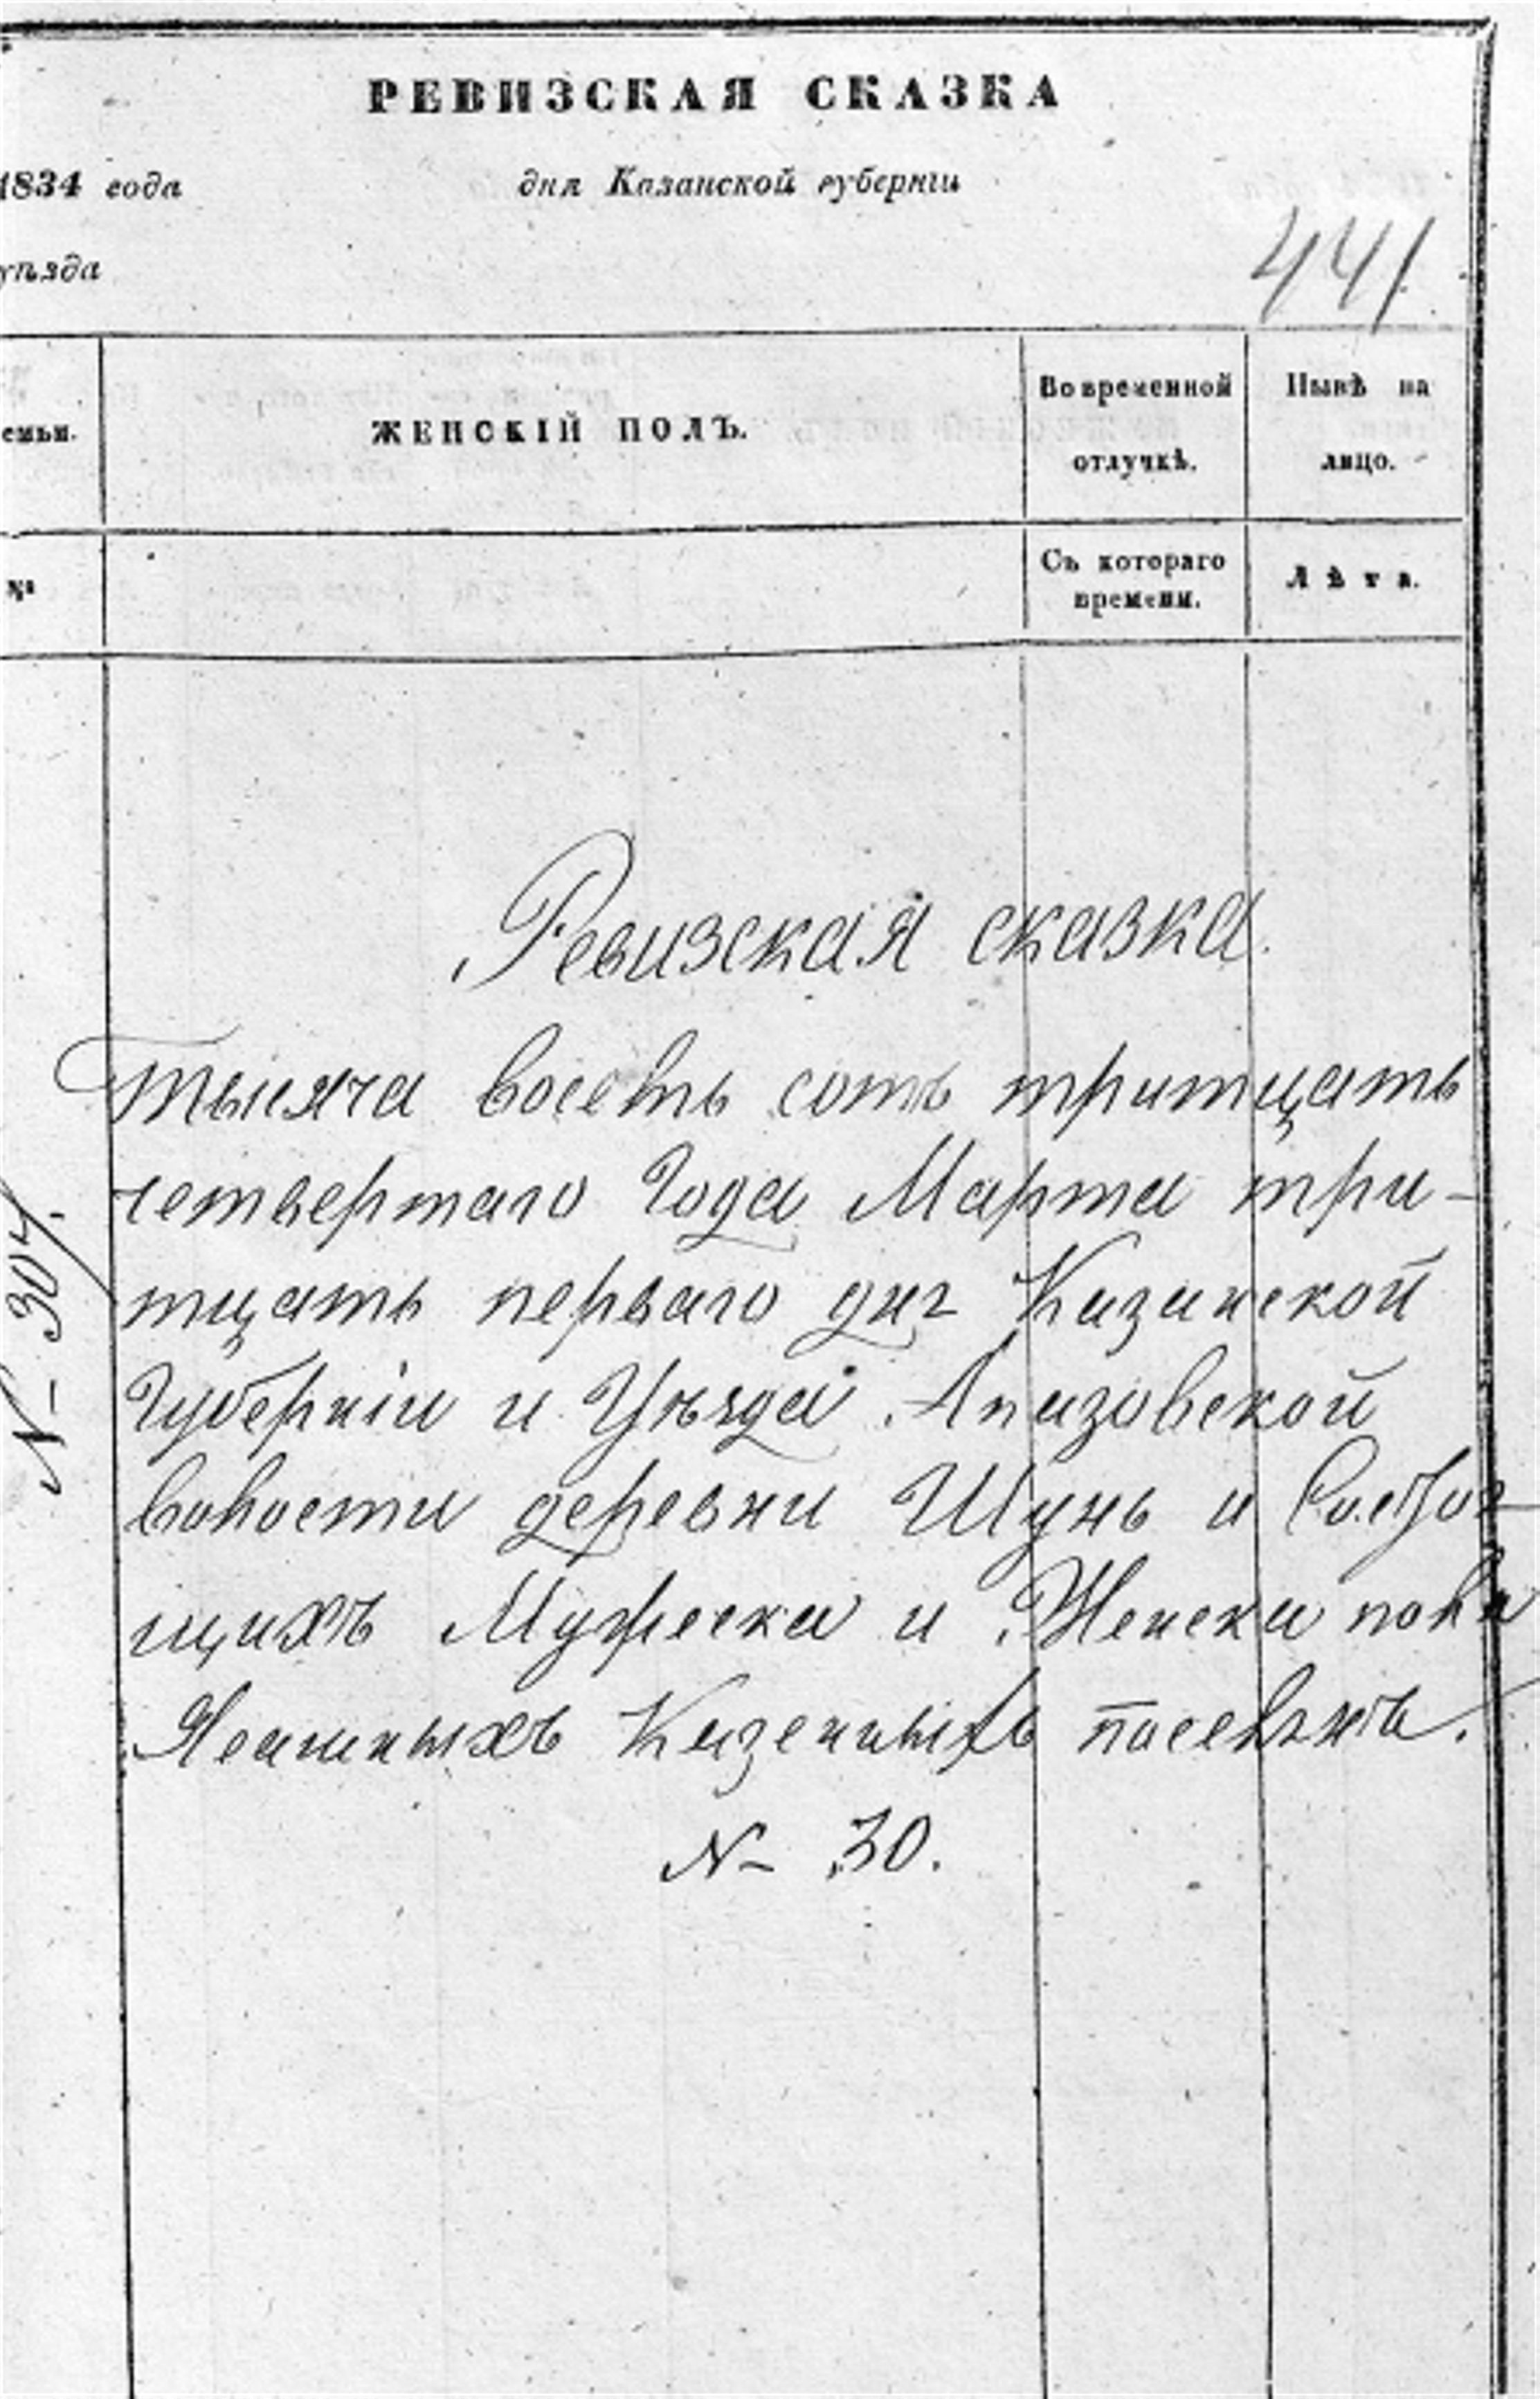 РЕВИЗСКАЯ СКАЗКА
1834 года дня Казанской губерніи
уѣзда
441
емьи. ЖЕНСКІЙ ПОЛЪ. Во временной отлучкѣ. Нынѣ на лицо.
№ Съ котораго времени. Лѣта.
Ревизская сказка
тысяча восемь сотъ тритцать
четвертаго Года Марта три-
тцать перваго дня Казанской
Губерніи и Уѣзда Апазовской
волости деревни Шунь и
щихъ Мужеска и Женска пола
Ясашныхъ Казенныхъ
№ 30.
№ 307.